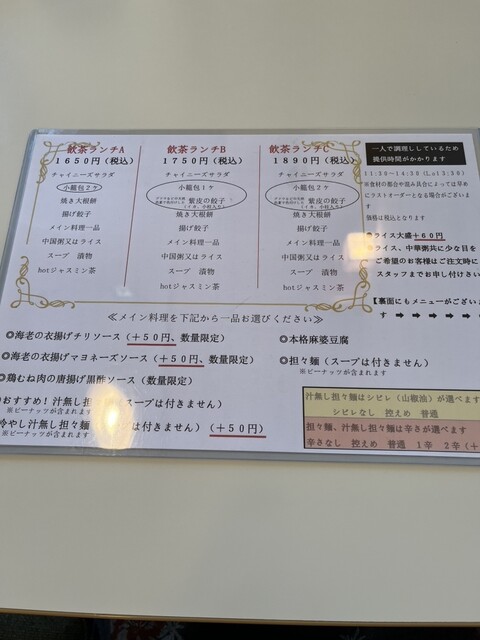 飲茶ランチA
1650円(税込)
チャイニーズサラダ
小籠包2ヶ
焼き大根餅
揚げ餃子
メイン料理一品
中国粥又はライス
スープ 漬物
hotジャスミン茶
飲茶ランチB
1750円(税込)
チャイニーズサラダ
小籠包1ヶ
紫皮の餃子
(イカ、小柱入り)
焼き大根餅
揚げ餃子
メイン料理一品
中国粥又はライス
スープ 漬物
hotジャスミン茶
飲茶ランチC
1890円(税込)
チャイニーズサラダ
小籠包2ヶ
紫皮の餃子
(イカ、小柱入り)
焼き大根餅
揚げ餃子
メイン料理一品
中国粥又はライス
スープ 漬物
hotジャスミン茶
一人で調理ししているため
提供時間がかかります
11:30~14:30 (Lo13:30)
※食材の都合や混み具合によっては早め
にラストオーダーとなる場合がございま
す
価格は税込となります
◎ライス大盛+60円
◎ライス、中華粥共に少な目を
ご希望のお客様はご注文時に
スタッフまでお申し付けさい
【裏面にもメニューがございま
す ➡ ➡ ➡ ➡ ➡
≪メイン料理を下記から一品お選びください≫
◎海老の衣揚げチリソース(+50円、数量限定)
◎海老の衣揚げマヨネーズソース(+50円、数量限定)
◎鶏むね肉の唐揚げ黒酢ソース(数量限定)
おすすめ!汁無し担々麺(スープは付きません)
※ピーナッツが含まれます
冷やし汁無し担々麺(スープは付きません)(+50円)
※ピーナッツが含まれます
◎本格麻婆豆腐
◎担々麺(スープは付きません)
※ピーナッツが含まれます
汁無し担々麺はシビレ(山椒油)が選べます
シビレなし 控えめ 普通
担々麺、汁無し担々麺は辛さが選べます
辛さなし 控えめ 普通 1辛 2辛(+